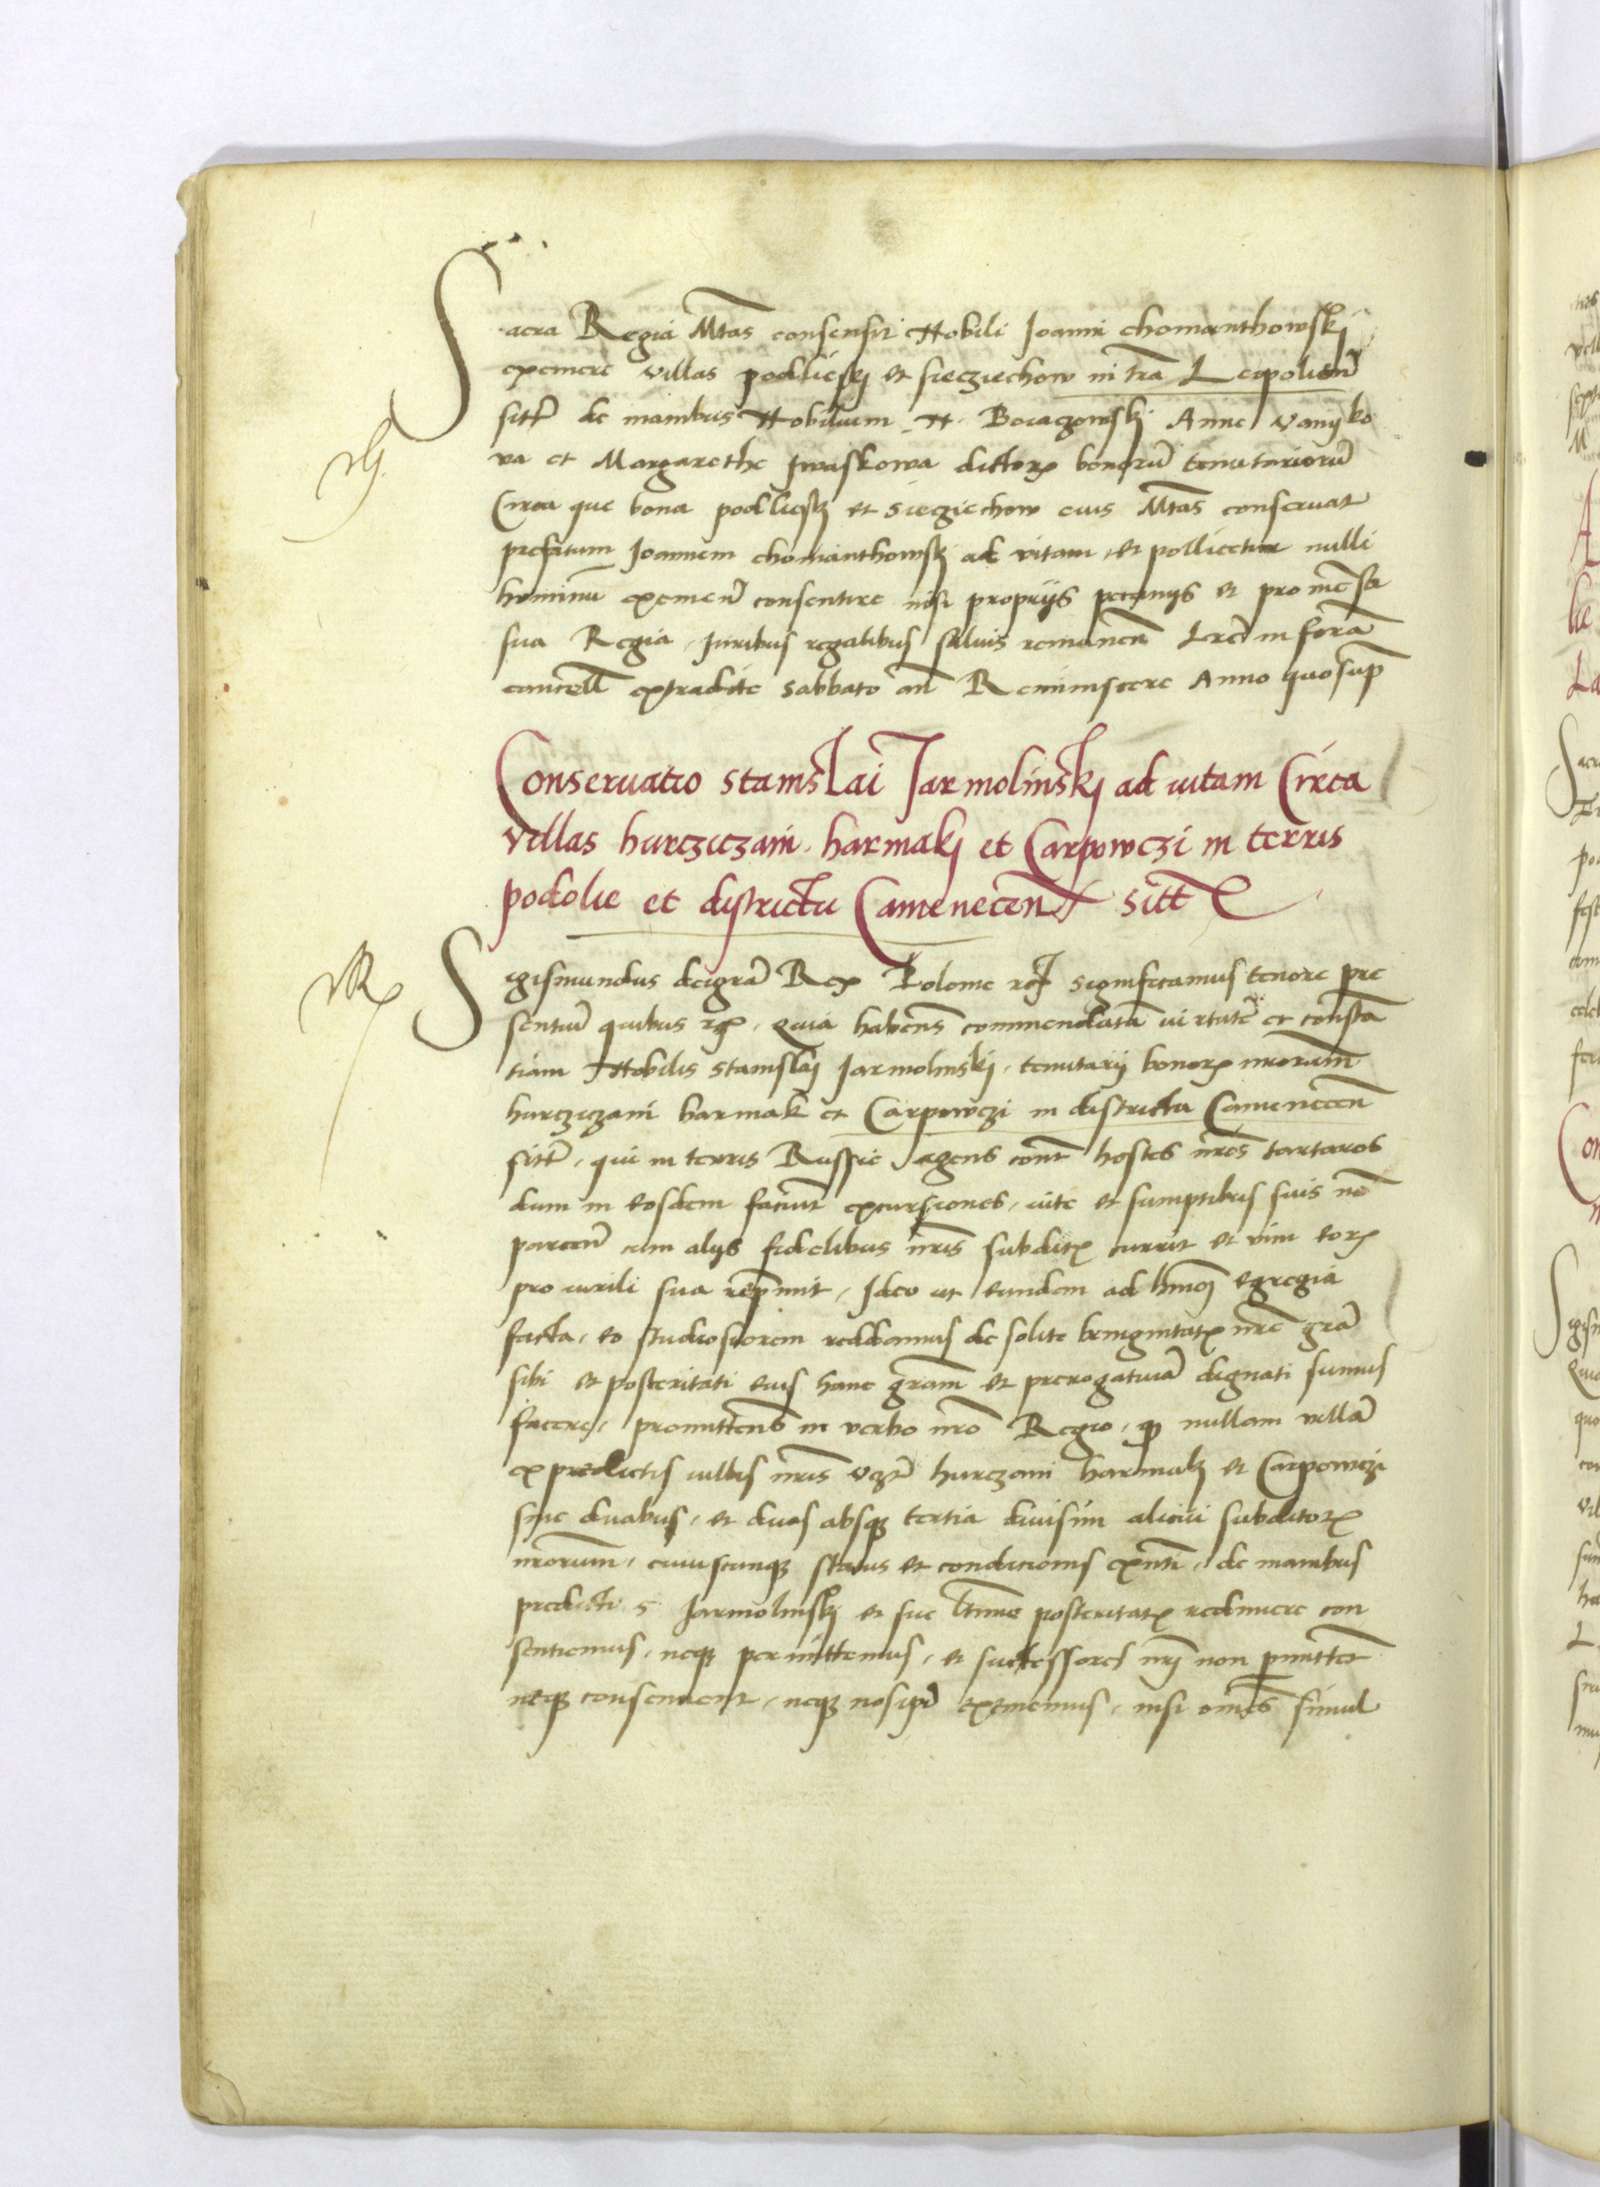 Sacra Regia Mtas consensit Nobili Joanni chomanthowskj
exemere villas podlieskj et sieczie­chow in tra Leopolien
sitt de manibus Nobilium N. Boiagowskj Anne vanyko
va et Margarethe Jwaskowa dictorum bonorū tenutariorū
Circa que bona podlieskj et Sieciechow eius Mtas conservat
prefatum Joannem chomanthowskj ad vitam, et pollicetur nulli
hominū exemen consentire nisi proprijs pecunijs et pro mesa
sua Regia, Juribus regalibus salvis remanen Lred in forā
cancell extradite Sabbato an Reminiscere Anno quosup
Conservatio Stanislai Jarmolinskj ad vitam Circa
villas hurcziczani, harmakj et Carpowczi in terris
podolie et districtu Camenecen sitt
Sigismundus deigrā Rex Polonie rc Significamus tenore pre
sentiū quibus rc, Quia habens commendatā virtutē et consta
tiam Nobilis Stanislaj Jarmolinskj, tenutarij bonorum nrorum
hurcziczani harmak et Carpowczi in districtu Camenecen
sitt, qui in terris Russie agens cont hostes nros tartaros
dum in eosdem faciut excursiones, vite et sumptibus suis no
parcen cum alijs fidelibus nris subditis currit et vim eorum
pro virili sua reprimit, Ideo ut eundem ad hmoi egregia
facta, eo studiosiorem reddamus de solite benignitatis nre grā
sibi et posteritati eius hanc gram et prerogativā dignati sumus
facere, promittens in verbo nro Regio, qz nullam villā
ex predictis villis nris vzt hurczani harmakj et Carpowczi
sine duabus, et duas absqz tertia divisim alicui subditorum
nrorum, cuiuscunqz status et condicionis exnti, de manibus
predicti S Jarmolinskj et sue ltime posteritatis redimere con
sentiemus, neqz permittemus, et successores nrj non pmittet
neqz consentient, neqz nosipi eximemus, nisi omes simul